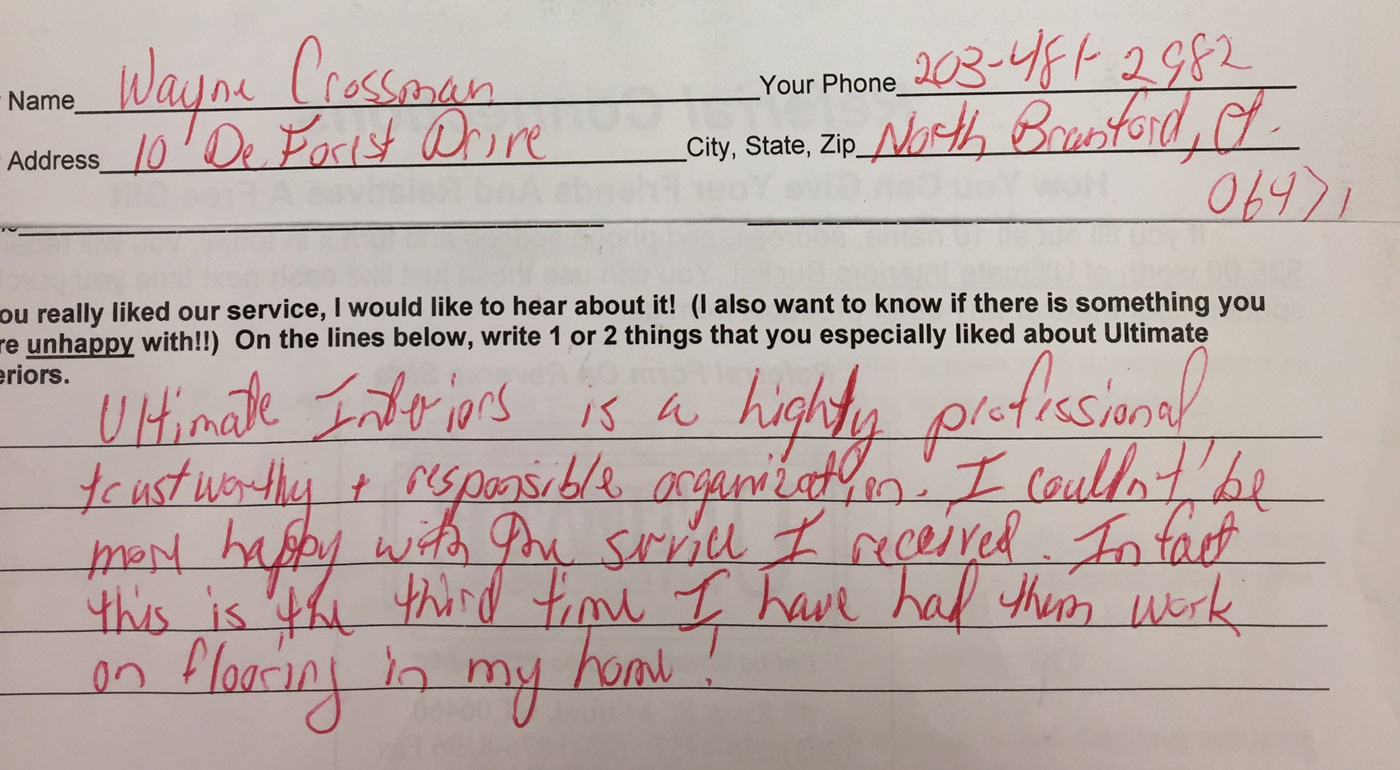 Name Wayne Crossman Your Phone 203-481-2982
Address 10 De Forest Drive City, State, Zip North Branford, Ct.
06471
ou really liked our service, I would like to hear about it! (I also want to know if there is something you
re unhappy with!!) On the lines below, write 1 or 2 things that you especially liked about Ultimate
eriors.
Ultimate Interiors is a highly professional
trustworthy + responsible organization. I couldn't be
more happy with the service I received. In fact
this is the third time I have had them work
on flooring in my home!